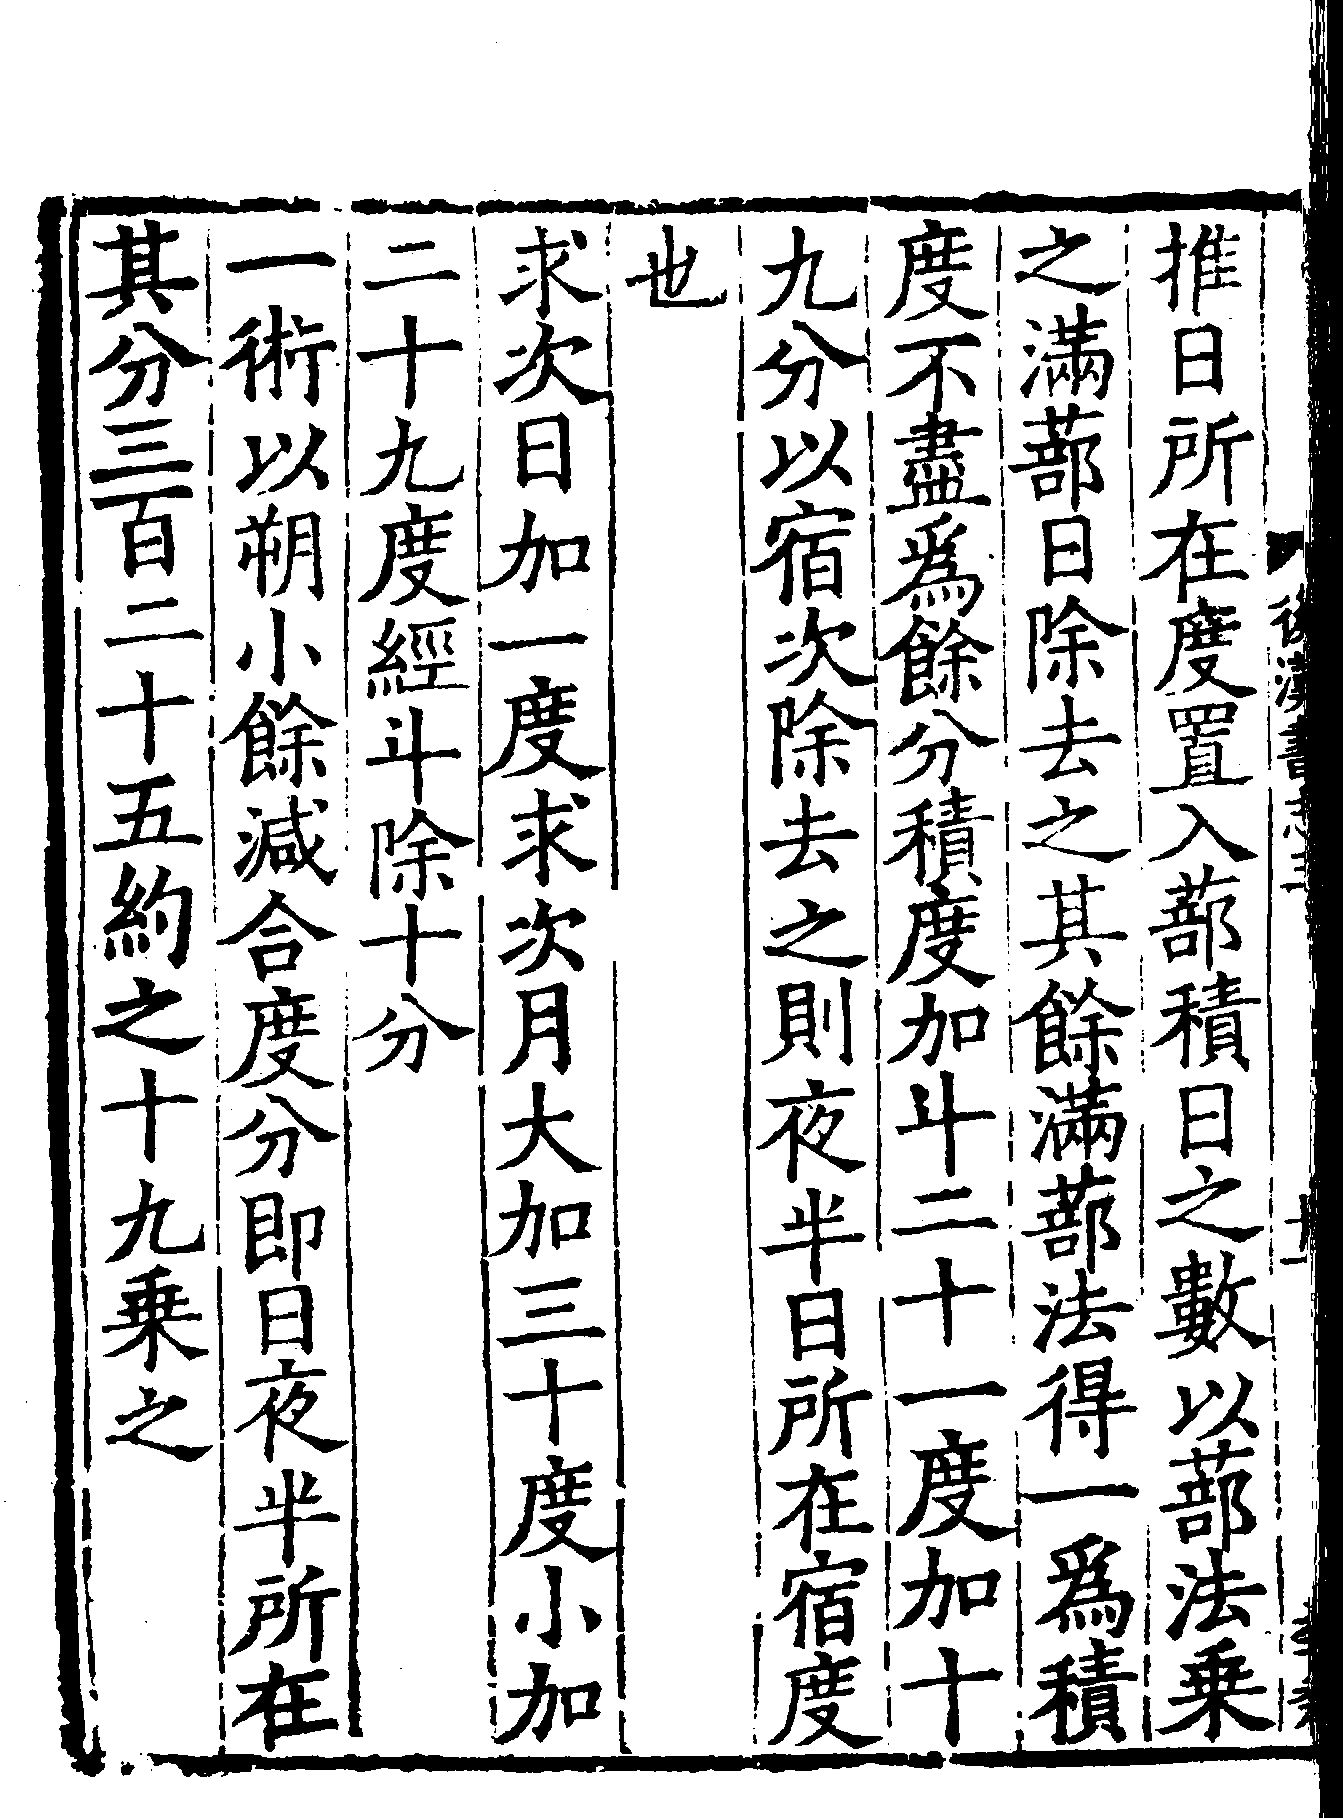 推日所在度置入蔀積日之數以蔀法乗
之滿蔀日除去之其餘滿蔀法得一爲積
度不盡爲餘分積度加斗二十一度加十
九分以宿次除去之則夜半日所在宿度
也
求次日加一度求次月大加三十度小加
二十九度經斗除十分
一術以朔小餘減合度分即日夜半所在
其分三百二十五約之十九乗之